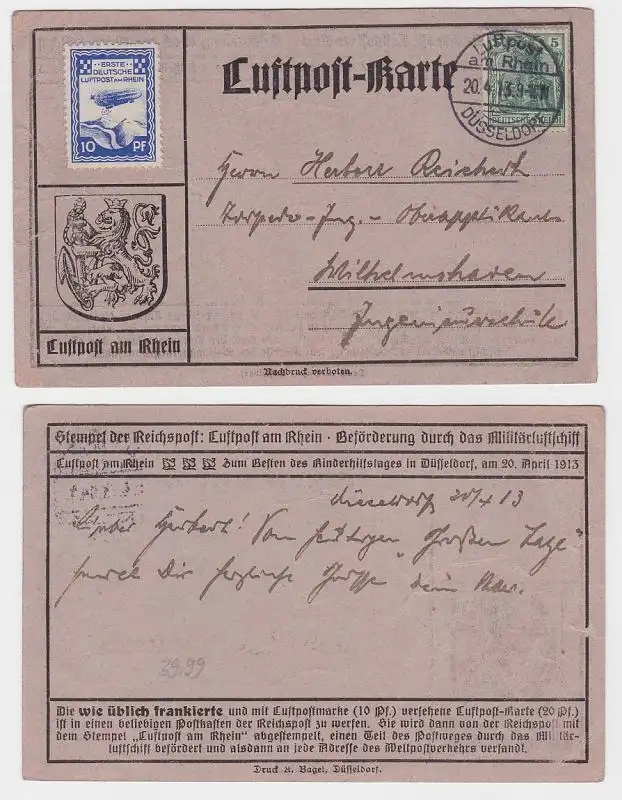 ERSTE
DEUTSCHE
LUFTPOST AM RHEIN
10 PF
Luftpost-Karte
5
Luftpost
am Rhein
20.4.13.9-
DÜSSELDORF
Herrn Herbert Reichert
Torpedo-Ing-
Wilhelmshaven
Ingenieurschule
Luftpost am Rhein
Nachdruck verboten.
Stempel der Reichspost: Luftpost am Rhein · Beförderung durch das Militärluftschiff
Luftpost am Rhein Zum Besten des Kinderhilfstages in Düsseldorf, am 20. April 1913
Düsseldorf 20/4 13
Lieber Herbert! Vom heutigen "Großen Tage"
sendet Dir herzliche Grüße dein
29.99
Die wie üblich frankierte und mit Luftpostmarke (10 Pf.) versehene Luftpost-Karte (20 Pf.)
ist in einen beliebigen Postkasten der Reichspost zu werfen. Sie wird dann von der Reichspost mit
dem Stempel „Luftpost am Rhein" abgestempelt, einen Teil des Postweges durch das Militär-
luftschiff befördert und alsdann an jede Adresse des Weltpostverkehrs versandt.
Druck A. Bagel, Düsseldorf.